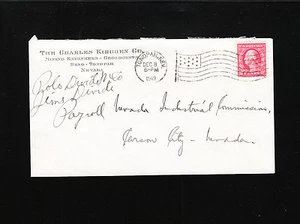 The Charles Kirchen Co.
Mining Engineers - Geologists
Reno - Tonopah
Nevada
TONOPAH, NEV.
DEC 9
6 PM
1919
Divide
Payroll
Nevada Industrial Commission,
Carson City - Nevada.